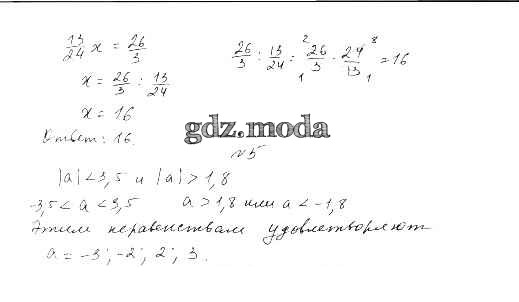 13/24 x = 26/3
26/3 : 13/24 = 26/3 · 24/13 = 16
x = 26/3 : 13/24
x = 16
Ответ: 16.
gdz.moda
№5
|a| < 3,5 и |a| > 1,8
-3,5 < a < 3,5 a > 1,8 или a < -1,8
Этим неравенствам удовлетворяют
a = -3; -2; 2; 3.